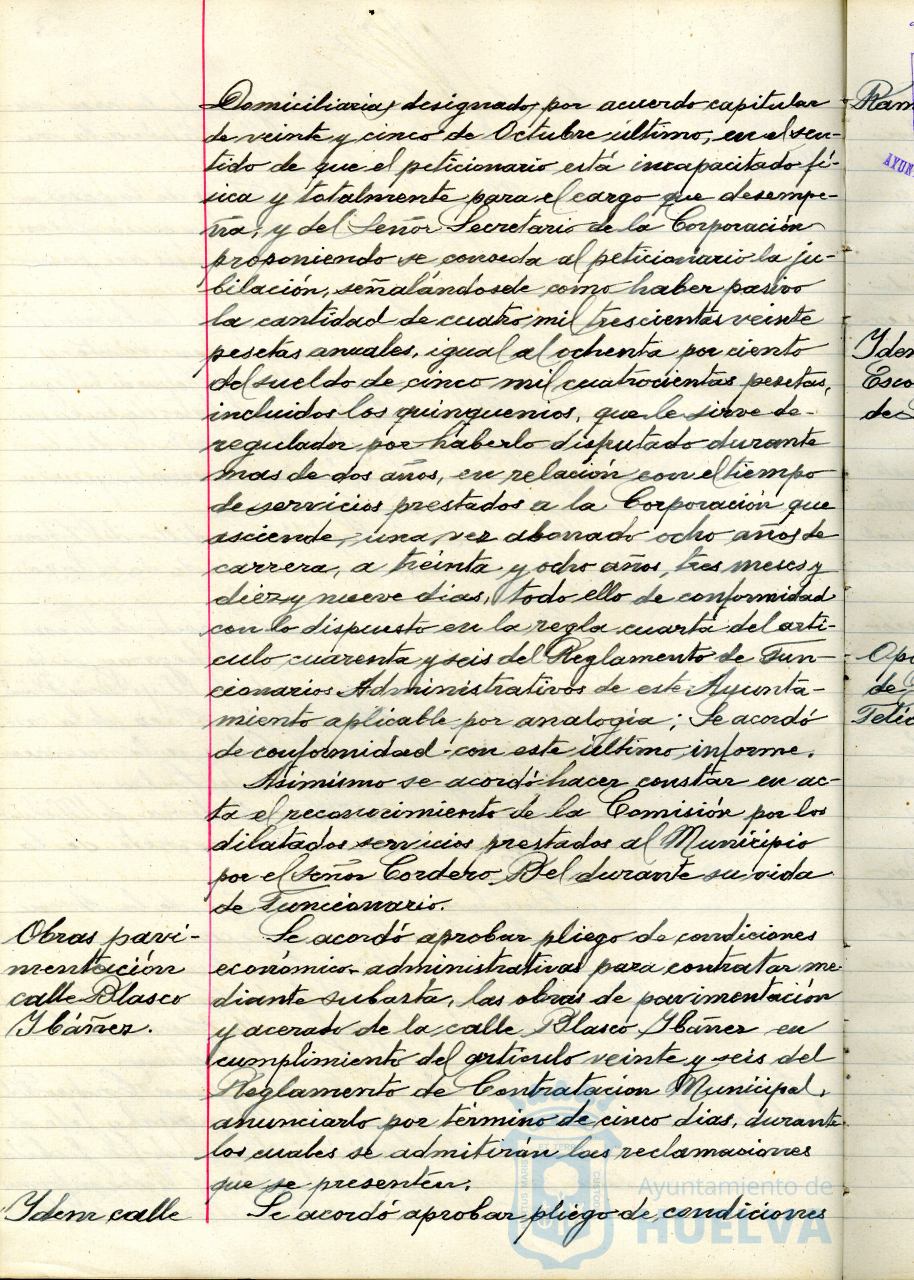 Domiciliaria, designado, por acuerdo capitular
de veinte y cinco de Octubre último, en el sen-
tido de que el peticionario está incapacitado fí-
sica y totalmente para el cargo que desempe-
ña, y del Señor Secretario de la Corporación
proponiendo se conceda al peticionario la ju-
bilación, señalándosele como haber pasivo
la cantidad de cuatro mil trescientas veinte
pesetas anuales, igual al ochenta por ciento
del sueldo de cinco mil cuatrocientas pesetas,
incluidos los quinquenios, que le sirve de-
regulador por haberlo disputado durante
mas de dos años, en relación con el tiempo
de servicios prestados a la Corporación que
asciende, una vez abonado ocho años de
carrera, a treinta y ocho años, tres meses y
diez y nueve dias, todo ello de conformidad
con lo dispuesto en la regla cuarta del artí-
culo cuarenta y seis del Reglamento de Fun-
cionarios Administrativos de este Ayunta-
miento aplicable por analogía; Se acordó
de conformidad con este último informe.
Asimismo se acordó hacer constar en ac-
ta el reconocimiento de la Comisión por los
dilatados servicios prestados al Municipio
por el Señor Cordero Bel durante su vida
de Funcionario.
Obras pavi-
mentación
calle Blasco
Ibáñez.
Se acordó aprobar pliego de condiciones
económico-administrativas para contratar me-
diante subasta, las obras de pavimentación
y acerado de la calle Blasco Ibáñez en
cumplimiento del artículo veinte y seis del
Reglamento de Contratación Municipal,
anunciarlo por término de cinco dias, durante
los cuales se admitirán las reclamaciones
que se presenten.
Idem calle
Se acordó aprobar pliego de condiciones
Ayuntamiento de
HUELVA